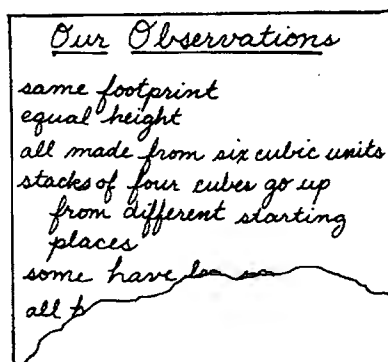 Our Observations
same footprint
equal height
all made from six cubic units
stacks of four cubes go up
from different starting
places
some have
all